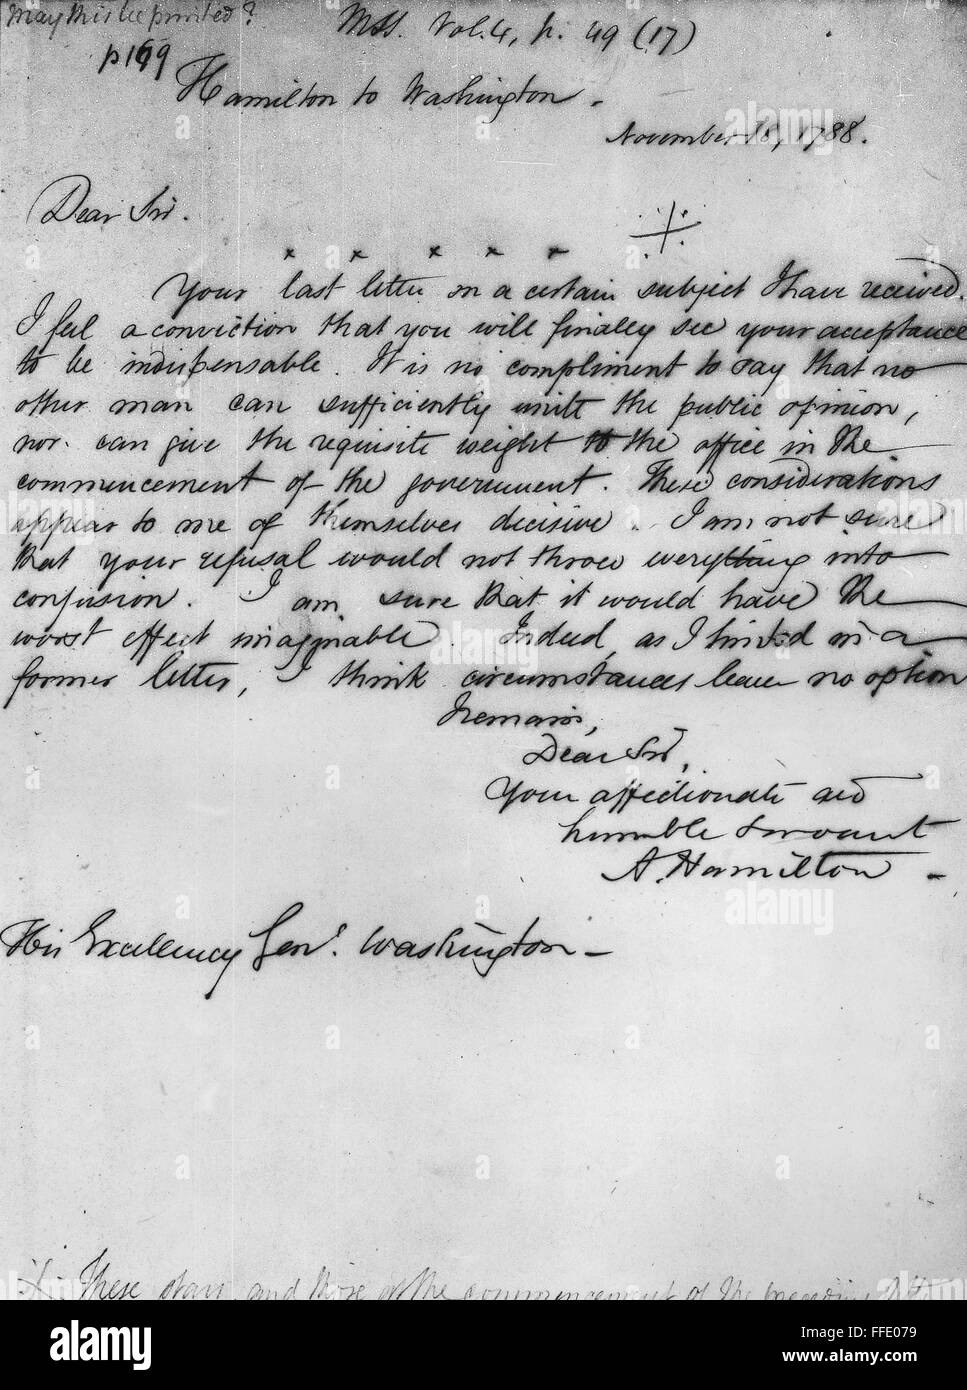 May this be printed?
p 169
Mss. Vol. 4, p. 49 (17)
Hamilton to Washington.
November 18, 1788.
Dear Sir.
x x x x x ※
Your last letter on a certain subject I have received.
I feel a conviction that you will finally see your acceptance
to be indispensable. It is no compliment to say that no
other man can sufficiently unite the public opinion,
nor can give the requisite weight to the office in the
commencement of the government. These considerations
appear to me of themselves decisive. I am not sure
that your refusal would not throw everything into
confusion. I am sure that it would have the
worst effect imaginable. Indeed, as I hinted in a
former letter, I think circumstances leave no option
I remain,
Dear Sir,
Your affectionate and
humble Servant
A. Hamilton
His Excellency Genl. Washington
※ These stars and those at the commencement of the preceding
alamy
Image ID: FFE079
www.alamy.com